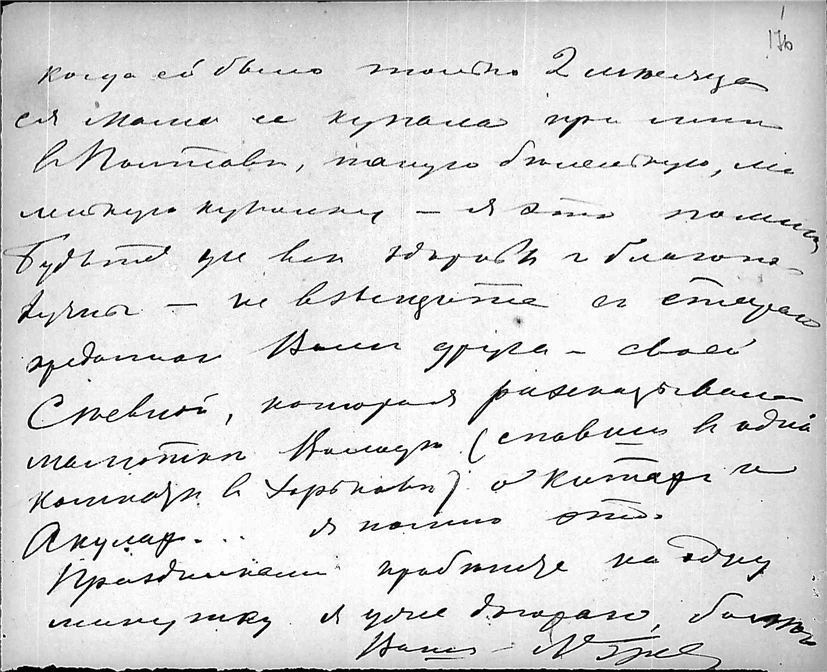 176
когда ей было только 2 месяца
ея мама ее купала при мне
въ Полтавѣ, такую бѣленькую, ма
ленькую куколку — я это помню
Будьте же все здоровы и благопо-
лучны — не взыщите съ стараго
преданнаго Вамъ друга — своей
которая разсказывала
малютки Володи (спавшей въ одной
комнатѣ въ Харьковѣ) о Китахъ и
Акулахъ... я помню это.
Праздниками на одну
минутку я уже догораю,
Ваша